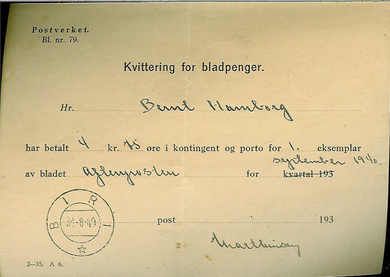 Postverket.
Bl. nr. 79.
Kvittering for bladpenger.
Hr. Bernt Hamborg
har betalt 4 kr. 75 øre i kontingent og porto for 1. eksemplar
september 1940.
av bladet Aftenposten for kvartal 193
BIRI
post 193
2–35. A 6.